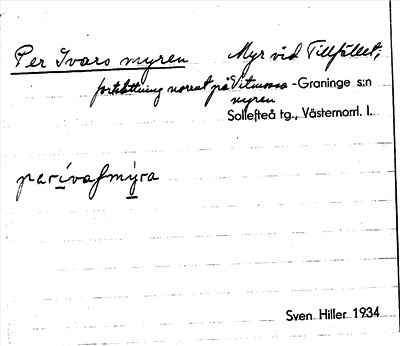 Per Ivars myren Myr vid Tillfället;
fortsättning norrut på Vitmossa-Graninge s:n
myren
Sollefteå tg., Västernorrl. l.
parívasmýra
Sven Hiller 1934